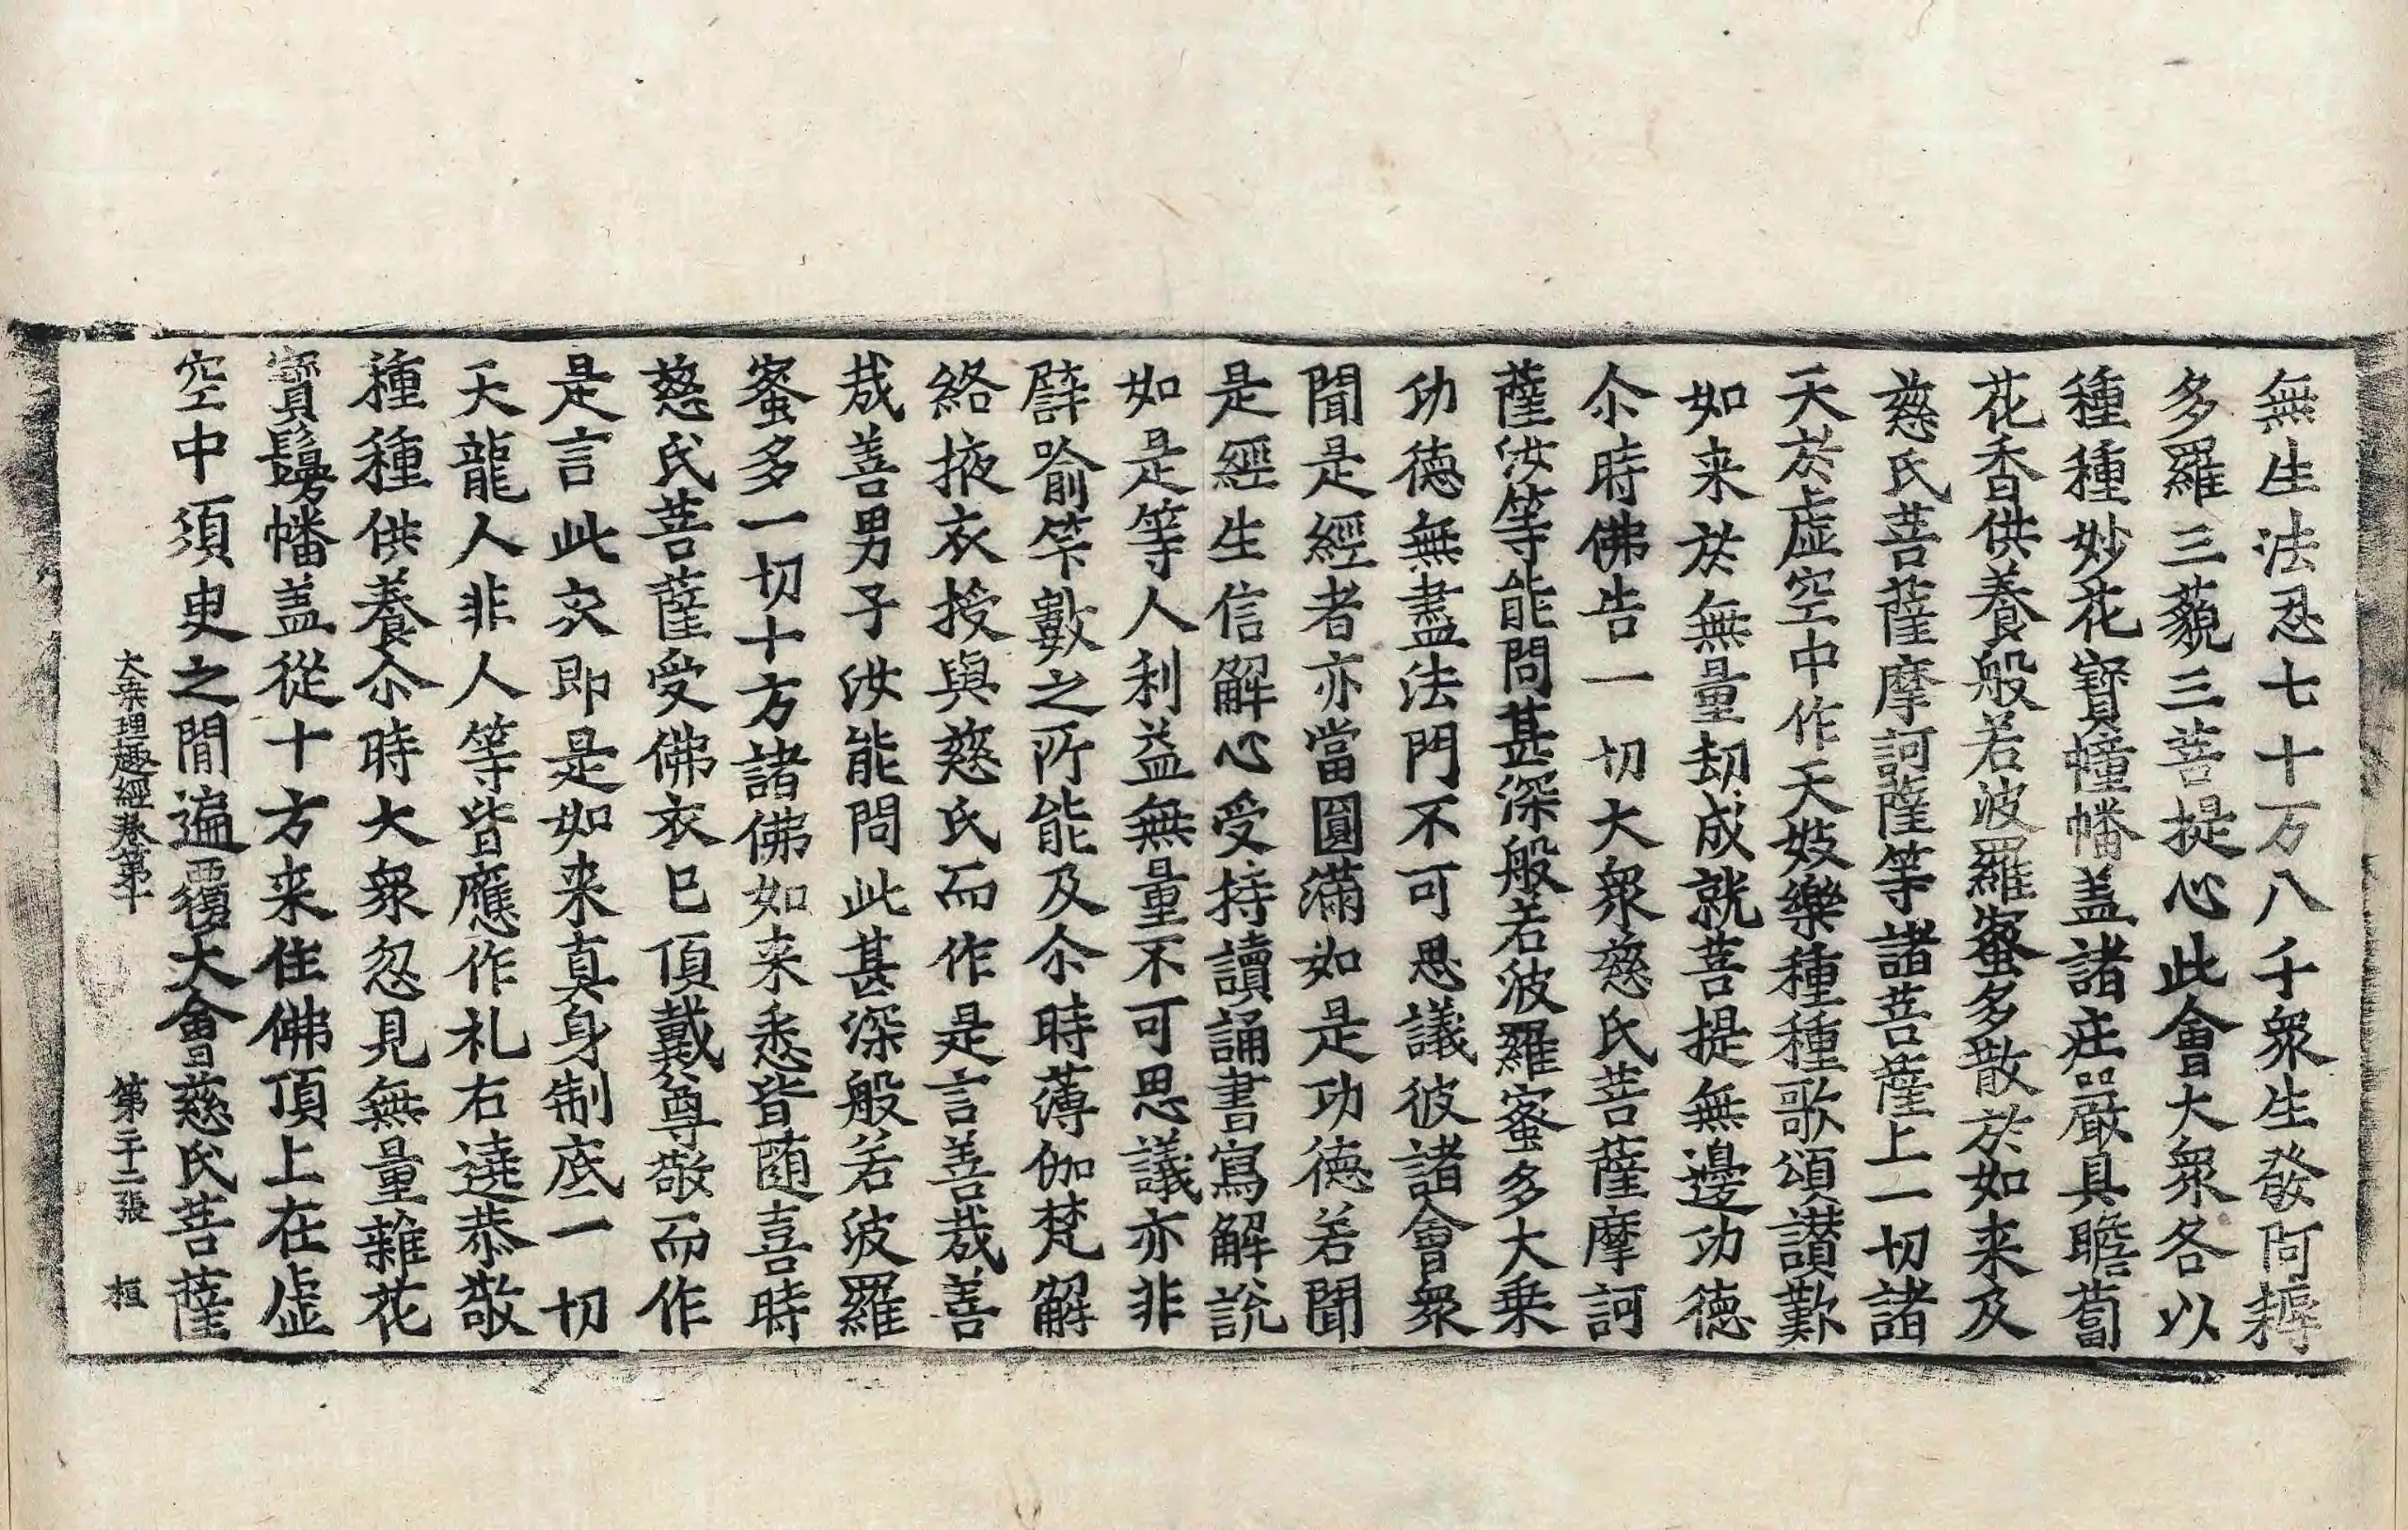 無生法忍七十万八千衆生發阿耨
多羅三藐三菩提心此會大衆各以
種種妙花寶幢幡盖諸庄嚴具瞻蔔
花香供養般若波羅蜜多散於如来及
慈氏菩薩摩訶薩等諸菩薩上一切諸
天於虛空中作天妓樂種種歌頌讃歎
如来於無量劫成就菩提無邊功德
尒時佛告一切大衆慈氏菩薩摩訶
薩汝等能問甚深般若波羅蜜多大乗
功德無盡法門不可思議彼諸會衆
聞是經者亦當圓滿如是功德若聞
是經生信解心受持讀誦書寫解說
如是等人利益無量不可思議亦非
譬喻筭數之所能及尒時薄伽梵解
絡掖衣授與慈氏而作是言善哉善
哉善男子汝能問此甚深般若波羅
蜜多一切十方諸佛如来悉皆随喜時
慈氏菩薩受佛衣已頂戴尊敬而作
是言此衣即是如来真身制底一切
天龍人非人等皆應作礼右遶恭敬
種種供養尒時大衆忽見無量雜花
寶鬘幡盖從十方来住佛頂上在虛
空中須臾之間遍覆大會慈氏菩薩
大乘理趣經卷第十 第二十二張 桓